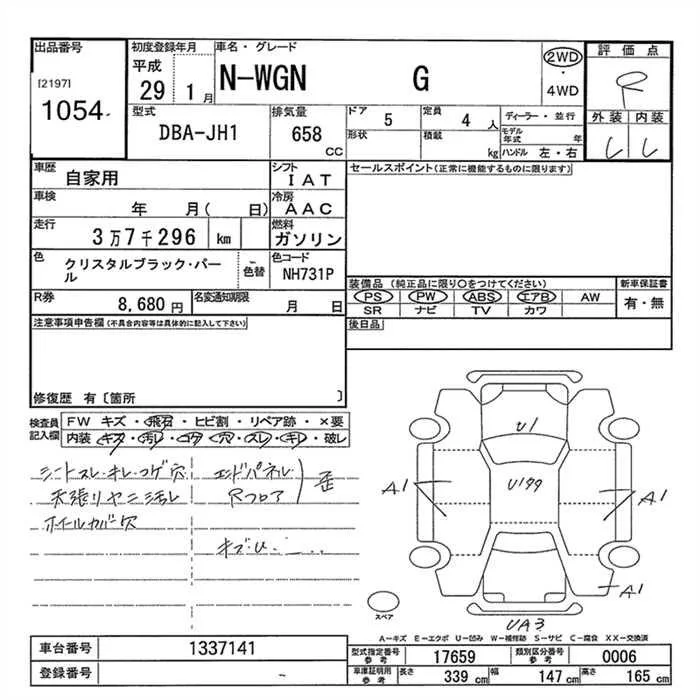 出品番号 初度登録年月 車名・グレード 評価点
[2197] 平成 N-WGN G 2WD ・ 4WD R
1054 29 1月 外装 内装
型式 排気量 ドア 5 定員 4人 ディーラー・並行
DBA-JH1 658 CC 形状 積載 kg モデル年式 年 ハンドル 左・右
車歴 自家用 シフト IAT セールスポイント(正常に機能するものに限ります)
車検 年 月( 日) 冷房 AAC
走行 3万7千296 km 燃料 ガソリン
色 クリスタルブラック・パール 色替 色コード NH731P
装備品 (純正品に限り○をつけてください) 新車保証書
R券 8,680円 名変通知期限 月 日 PS PW ABS エアB AW 有・無
SR ナビ TV カワ
注意事項申告欄(不具合内容等は具体的に記載して下さい) 後日品
修復歴 有〔箇所 〕
検査員記入欄 FW キズ・飛石・ヒビ割・リペア跡・×要
内装 キズ・汚レ・コゲ・穴・スレ・キレ・破レ
シートスレ・キレ・コゲ穴 エンドパネル
天張リヤニ汚レ Rフロア 歪
ホイールカバー穴
キズ・U・……
U1
U199
A1 A1
A1
スペア
UA3
A-キズ E-エクボ U-凹み W-補修跡 S-サビ C-腐食 XX-交換済
車台番号 1337141 型式指定番号 参考 17659 類別区分番号 参考 0006
登録番号 - 車庫証明用 参考 長さ 339 cm 幅 147 cm 高さ 165 cm